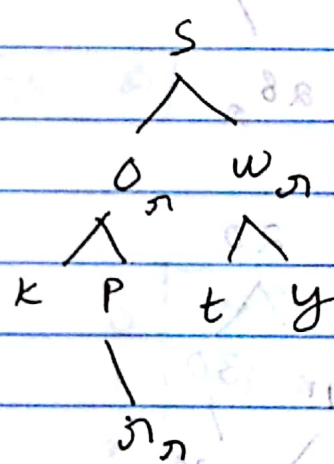 S
O W
K P t y